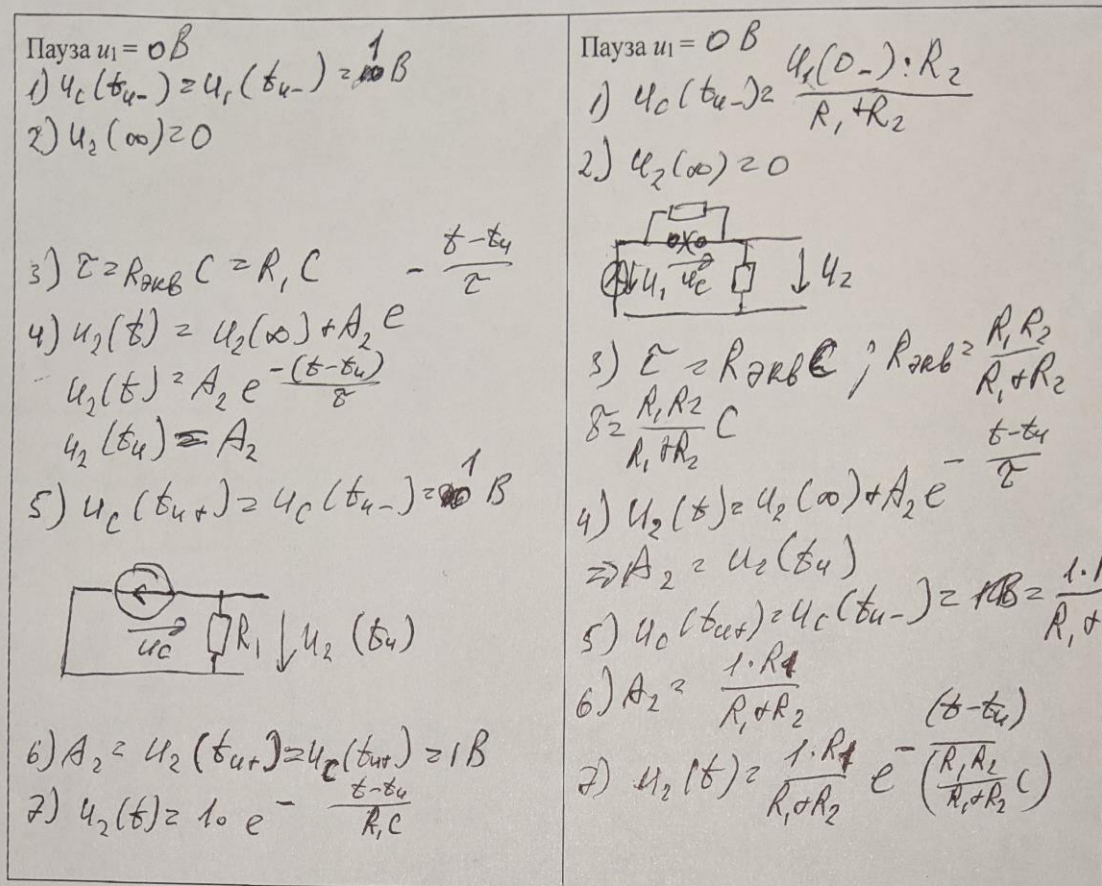 Пауза u₁ = 0 В
1) u_C(t_и-) = u₁(t_и-) = 1 В
2) u₂(∞) = 0
3) τ = R_экв C = R₁C
4) u₂(t) = u₂(∞) + A₂ e^(-(t-t_и)/τ)
u₂(t) = A₂ e^(-(t-t_и)/τ)
u₂(t_и) = A₂
5) u_C(t_и+) = u_C(t_и-) = 1 В
u_C R₁ u₂(t_и)
6) A₂ = u₂(t_и+) = u_C(t_и+) = 1 В
7) u₂(t) = 10 e^(-(t-t_и)/(R₁C))
Пауза u₁ = 0 В
1) u_C(t_и-) = (u₁(0-) · R₂)/(R₁+R₂)
2) u₂(∞) = 0
u₁ u_C u₂
3) τ = R_экв C ; R_экв = (R₁R₂)/(R₁+R₂)
τ = (R₁R₂)/(R₁+R₂) C
4) u₂(t) = u₂(∞) + A₂ e^(-(t-t_и)/τ)
=> A₂ = u₂(t_и)
5) u_C(t_и+) = u_C(t_и-) =
6) A₂ = (1·R₁)/(R₁+R₂)
7) u₂(t) = (1·R₁)/(R₁+R₂) e^(-(t-t_и)/((R₁R₂)/(R₁+R₂) C))